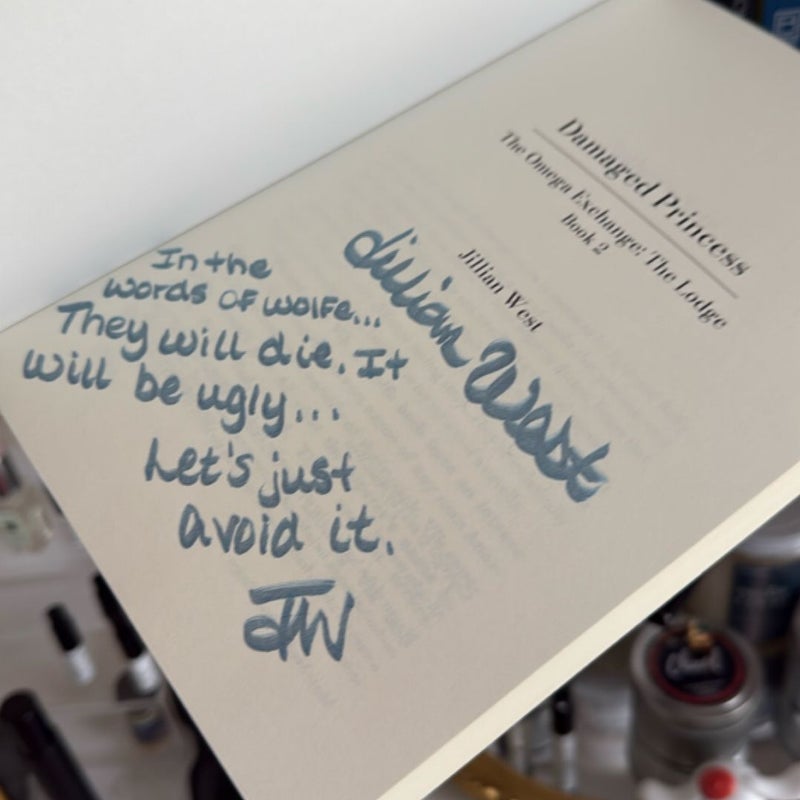 Damaged Princess
The Omega Exchange: The Lodge
Book 2
Jillian West
Jillian West
In the
words of wolfe...
They will die. It
will be ugly...
Let's just
avoid it.
JW